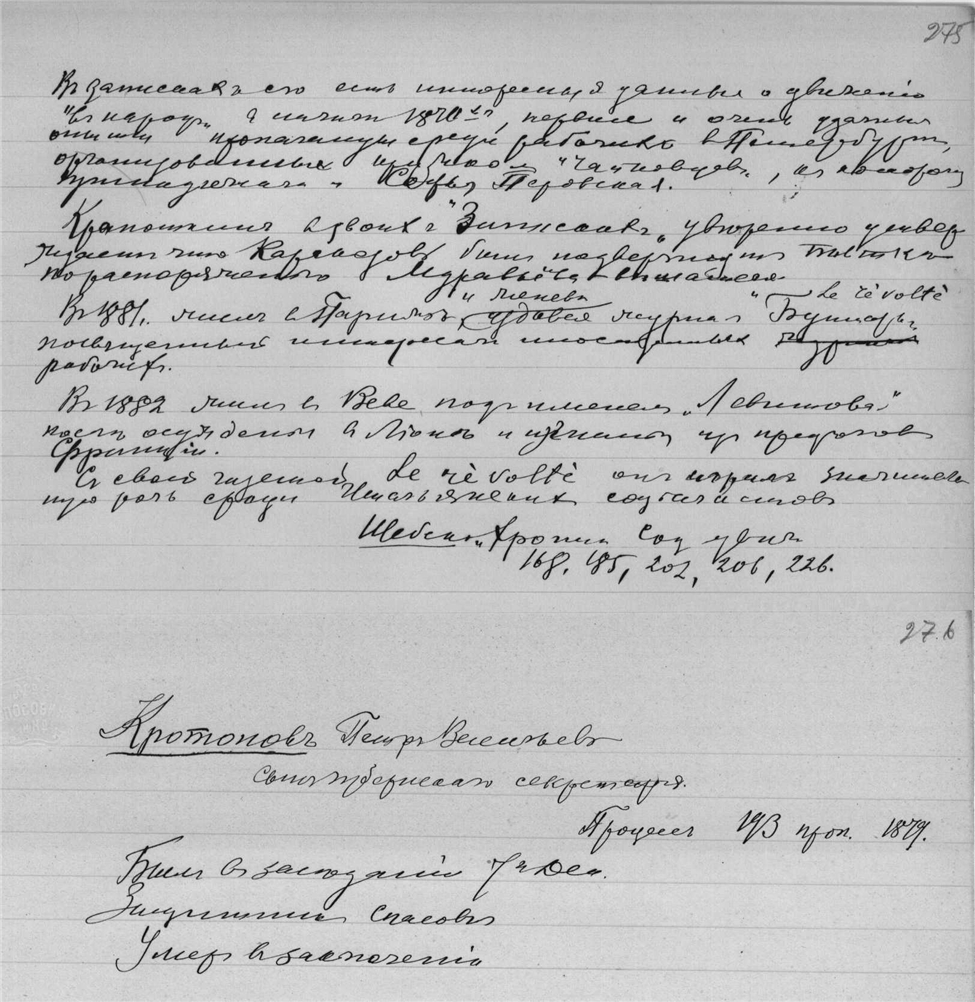 275
Въ запискахъ его есть интересныя данныя о движенiи
"въ народъ" въ началѣ 1870хъ, первые и очень удачные
опыты пропаганды среди рабочихъ въ Петербургѣ,
организованныхъ кружкомъ "Чайковцевъ", къ которому
принадлежала и Софья Перовская.
Кропоткинъ въ своихъ "Запискахъ" увѣренно утвер
ждаетъ что Каракозовъ былъ подвергнутъ пыткѣ
по распоряженiю Муравьева
и женевѣ Le révolté
Въ 1881г. жилъ въ Парижѣ, издавая журналъ "Бунтарь"
посвященный интересамъ
рабочихъ.
Въ 1882 жилъ въ Веве подъ именемъ "Левашова"
послѣ осужденiя въ Лiонѣ и изгнанiя изъ предѣловъ
Францiи.
Съ своей газетой Le révolté онъ игралъ значитель
ную роль среди Итальянскихъ соцiалистовъ
Шебеко "Хроника Соц движ
168, 185, 202, 206, 226.
276
Кротоновъ Петръ Васильевъ
сынъ губернскаго секретаря.
Процессъ 193 проп. 1879.
Былъ въ засѣданiи
Защитникъ Спасовичъ
Умеръ въ заключенiи